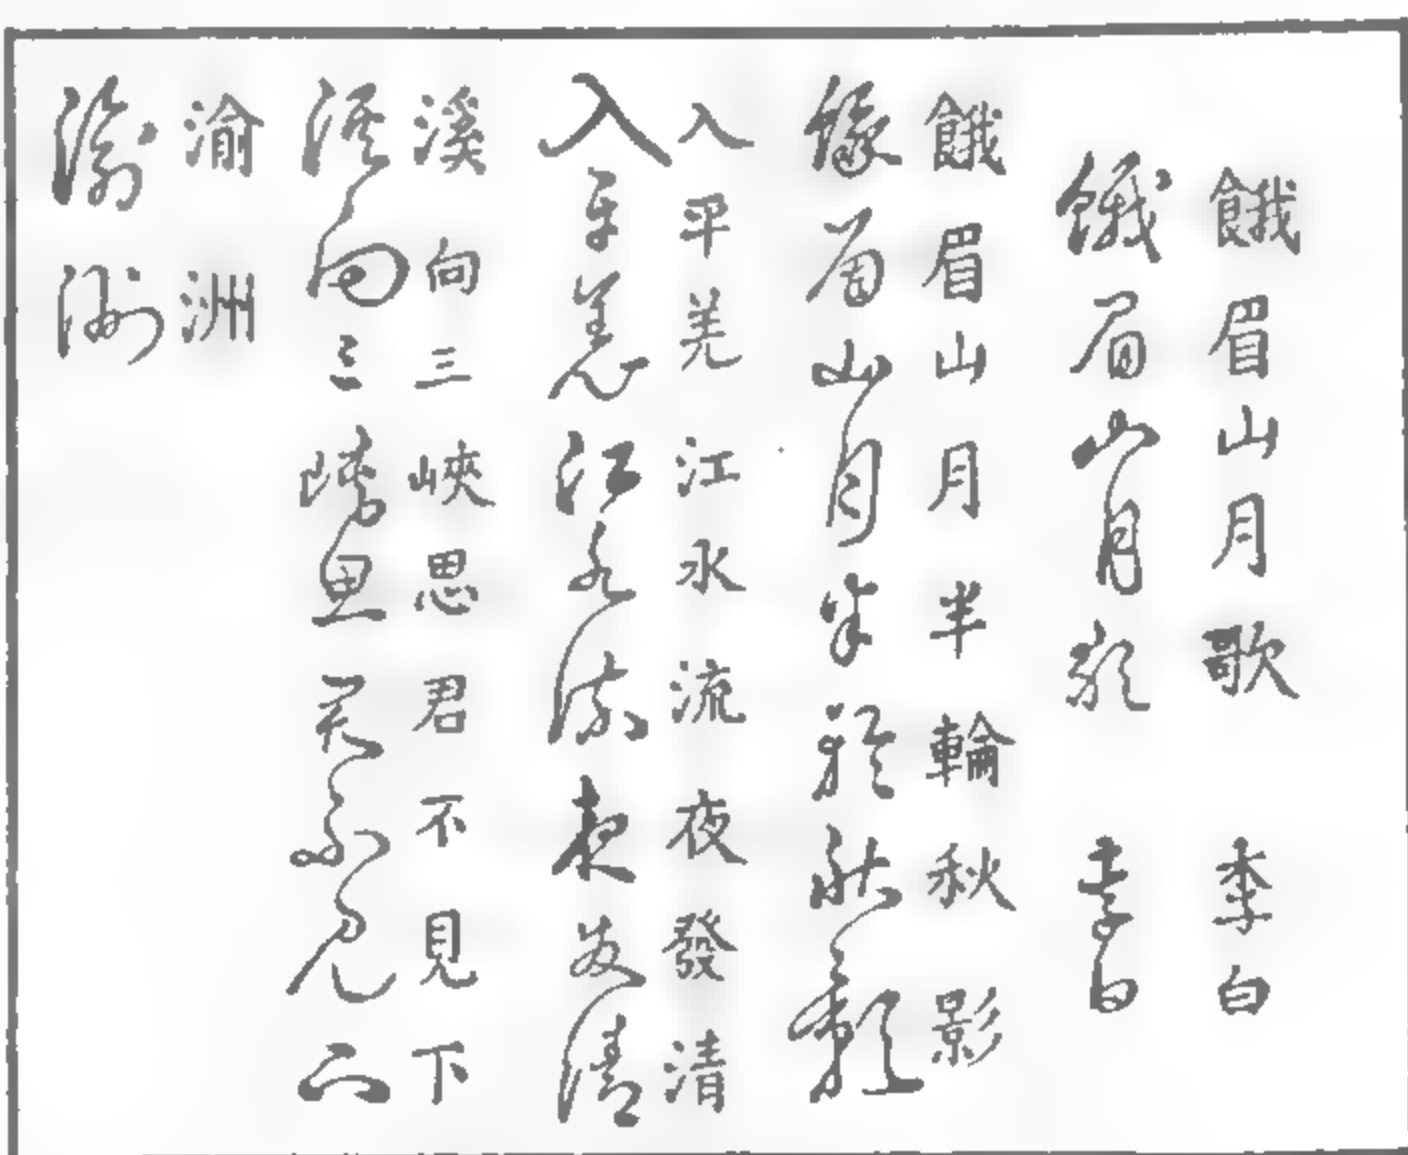 餓眉山月歌 李白
餓眉山月歌 李白
餓眉山月半輪秋影
餓眉山月半輪秋影
入平羌江水流夜發清
入平羌江水流夜发清
溪向三峽思君不見下
溪向三峽思君不見下
渝洲
渝洲